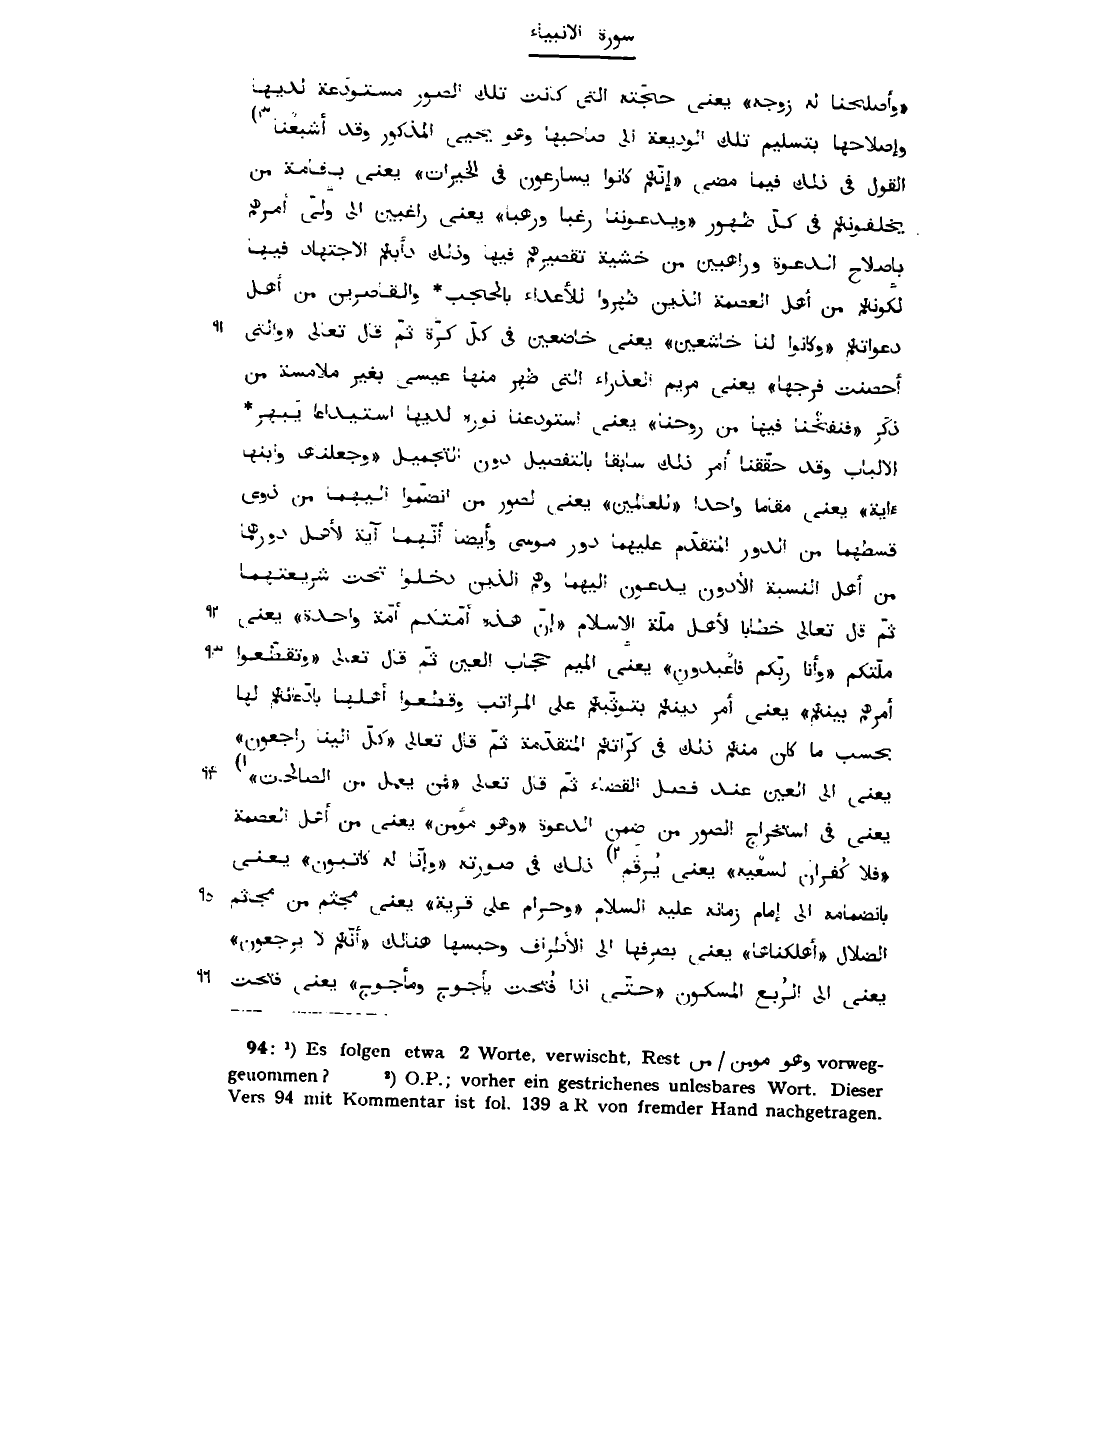 سورة الانبياء
«وأصلحنا له زوجه» يعنى حجّته التى كانت تلك الصور مستودَعة لديها
وإصلاحها بتسليم تلك الوديعة الى صاحبها وهو يحيى المذكور وقد أشبعْنا ٣)
القول فى ذلك فيما مضى «إنّهم كانوا يسارعون فى الخيرات» يعنى بإقامة من
يخلفونهم فى كلّ ظهور «ويدعوننا رغبا ورهبا» يعنى راغبين الى ولىّ أمرهم
بإصلاح الدعوة وراهبين من خشية تقصيرهم فيها وذلك دأبهم الاجتهاد فيها
لكونهم من أهل العصمة الذين ظهروا للأعداء بالحاجب* والقاصرين من أهل
دعواتهم «وكانوا لنا خاشعين» يعنى خاضعين فى كلّ كرّة ثمّ قال تعالى «والتى ٩١
أحصنت فرجها» يعنى مريم العذراء التى ظهر منها عيسى بغير ملامسة من
ذكَر «فنفخْنا فيها من روحنا» يعنى استودعنا نوره لديها استيداعا يَبهر*
الالباب وقد حقّقنا أمر ذلك سابقا بالتفصيل دون التجميل «وجعلنٰها وابنها
ءاية» يعنى مقاما واحدا «للعالمين» يعنى لصور من انضمّوا اليهما من ذوى
قسطهما من الدور المتقدّم عليهما دور موسى وأيضا أنّهما آية لأهل دورهما
من أهل النسبة الأدون يدعون اليهما وهم الذين دخلوا تحت شريعتهما
ثمّ قال تعالى خطابا لأهل ملّة الإسلام «إنّ هذه أمّتكم أمّة واحدة» يعنى ٩٢
ملّتكم «وأنا ربّكم فاعْبدون» يعنى الميم حجاب العين ثمّ قال تعالى «وتقطّعوا ٩٣
أمرهم بينهم» يعنى أمر دينهم بتوثّبهم على المراتب وقطعوا أهلها بادّعائهم لها
بحسب ما كان منهم ذلك فى كرّاتهم المتقدّمة ثمّ قال تعالى «كلّ الينا راجعون»
يعنى الى العين عند فصل القضاء ثمّ قال تعالى «فمن يعمل من الصالحت» ١) ٩۴
يعنى فى استخراج الصور من ضمن الدعوة «وهو مؤمن» يعنى من أهل العصمة
«فلا كُفران لسعْيه» يعنى يُرقَم ٢) ذلك فى صورته «وإنّا له كاتبون» يعنى
بانضمامه الى إمام زمانه عليه السلام «وحرام على قرية» يعنى مجثم من مجاثم ٩٥
الضلال «أهلكناها» يعنى بصرفها الى الأطراف وحبسها هنالك «أنّهم لا يرجعون»
يعنى الى الرُبع المسكون «حتّى اذا فُتحت يأجوج ومأجوج» يعنى فاتحت ٩٦
94: ¹) Es folgen etwa 2 Worte, verwischt, Rest وهو مومن / من vorweg-
genommen? ²) O.P.; vorher ein gestrichenes unlesbares Wort. Dieser
Vers 94 mit Kommentar ist fol. 139 a R von fremder Hand nachgetragen.